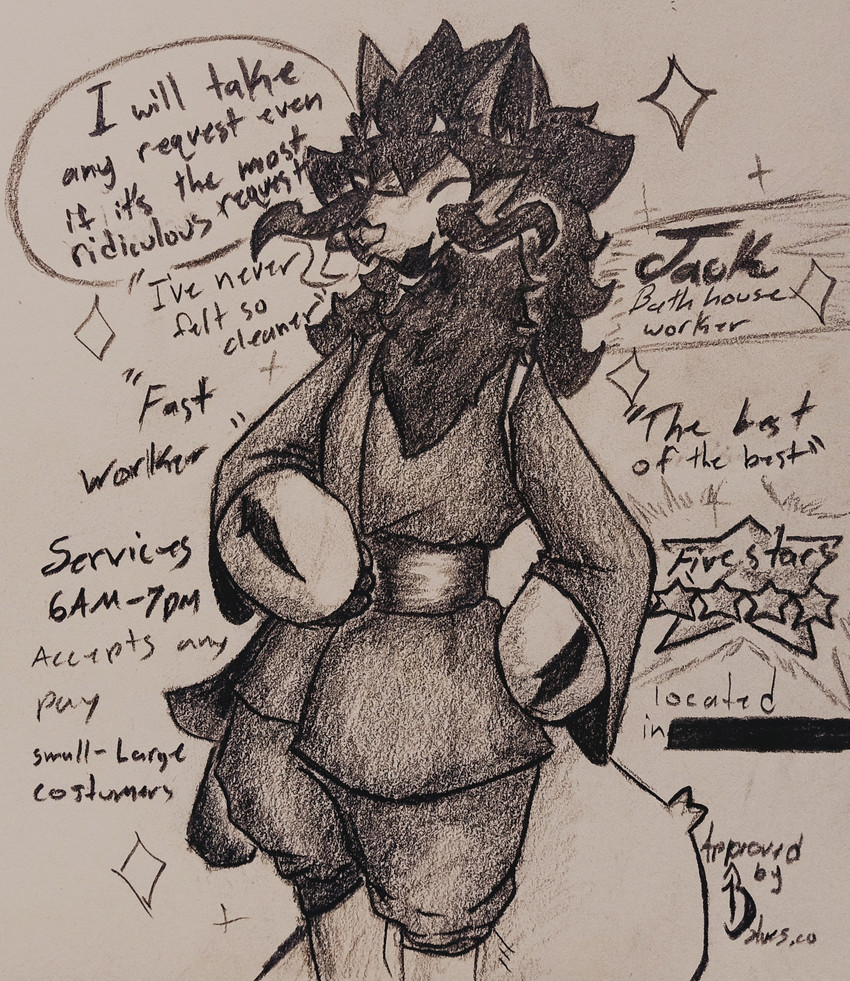 I will take
any request even
if it's the most
ridiculous request
"I've never
felt so
cleaner"
"Fast
worker"
Services
6AM-7PM
Accepts any
pay
small-Large
costumers
Jack
Bath house
worker
"The best
of the best"
Five stars
located
in
Approved
by